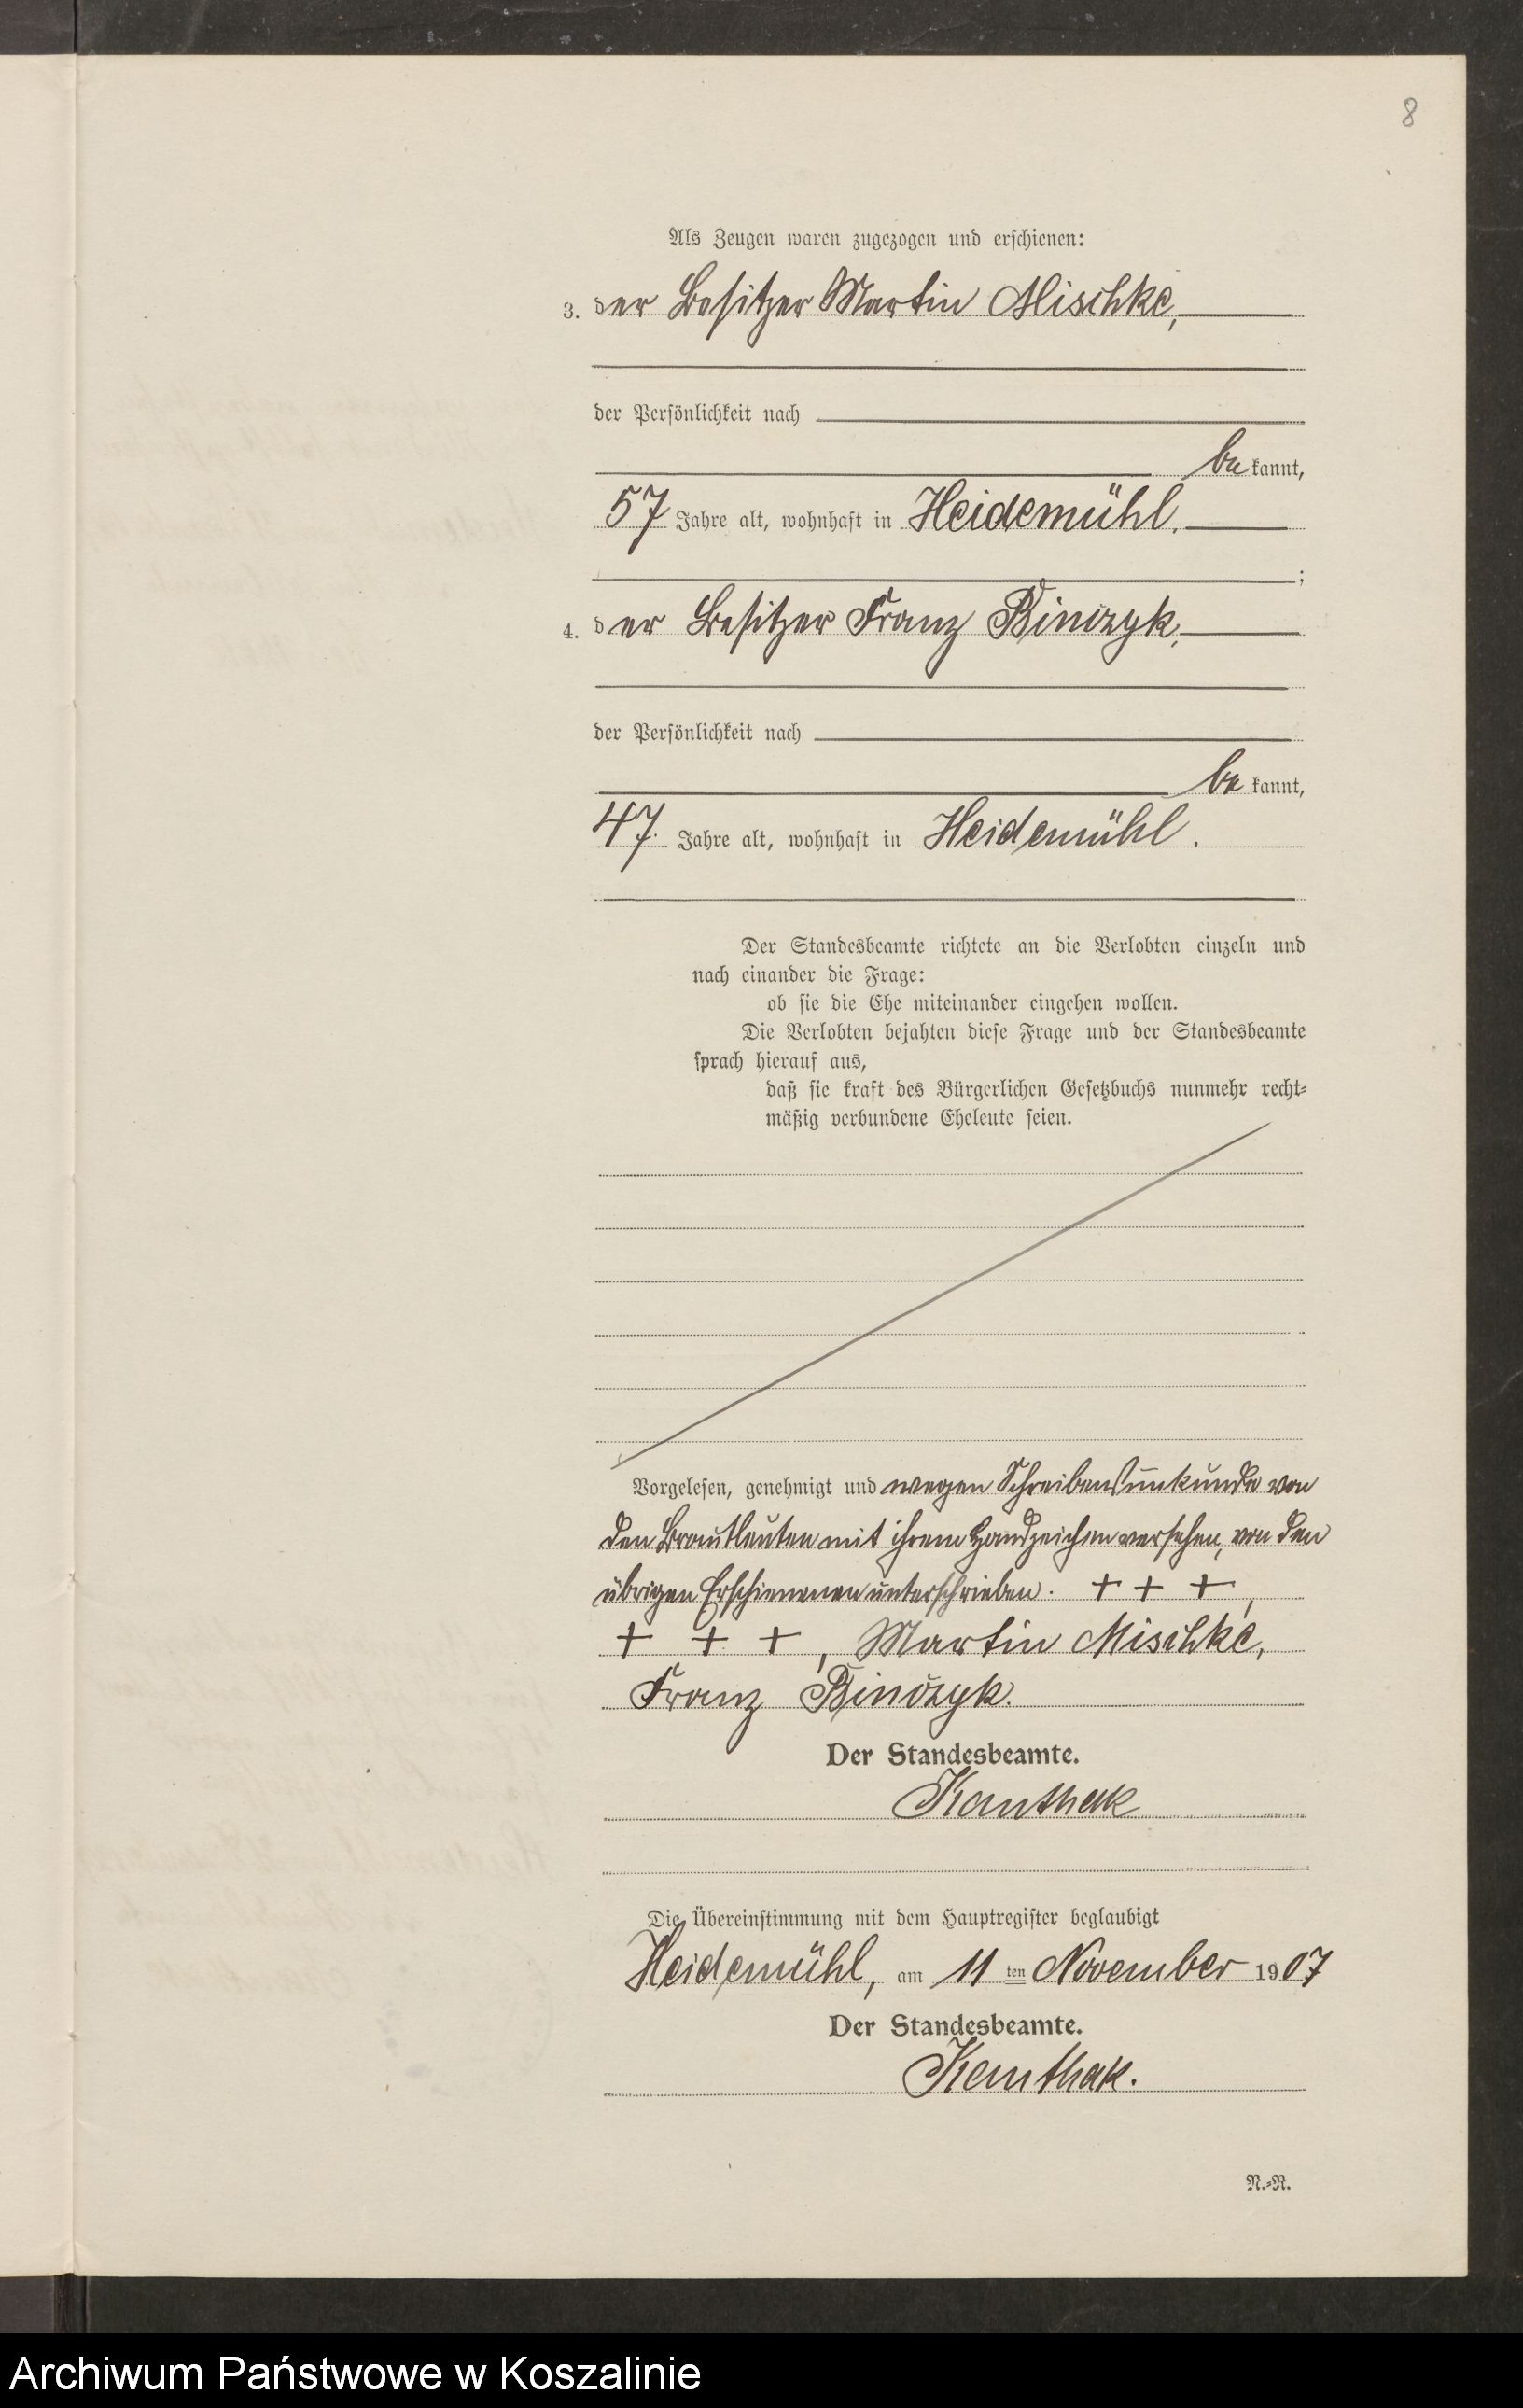 8
Als Zeugen waren zugezogen und erschienen:
3. der Besitzer Martin Mischke,
der Persönlichkeit nach
bekannt,
57 Jahre alt, wohnhaft in Heidemühl,
;
4. der Besitzer Franz Binczyk,
der Persönlichkeit nach
bekannt,
47. Jahre alt, wohnhaft in Heidemühl.
Der Standesbeamte richtete an die Verlobten einzeln und
nach einander die Frage:
ob sie die Ehe miteinander eingehen wollen.
Die Verlobten bejahten diese Frage und der Standesbeamte
sprach hierauf aus,
daß sie kraft des Bürgerlichen Gesetzbuchs nunmehr recht-
mäßig verbundene Eheleute seien.
Vorgelesen, genehmigt und wegen Schreibensunkunde von
den Brautleuten mit ihrem Handzeichen versehen, von den
übrigen Erschienenen unterschrieben. + + +,
+ + +, Martin Mischke,
Franz Binczyk.
Der Standesbeamte.
Kanthak
Die Übereinstimmung mit dem Hauptregister beglaubigt
Heidemühl, am 11ten November 1907
Der Standesbeamte.
Kanthak.
N.-R.
Archiwum Państwowe w Koszalinie